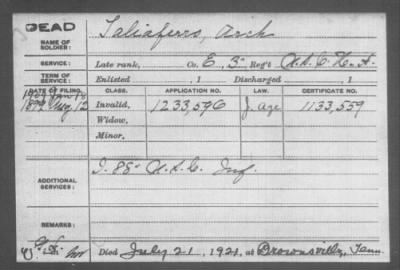 DEAD
NAME OF SOLDIER: Taliaferro, Arch
SERVICE: Late rank, Co. E, 3" Reg't U.S.C.H.A.
TERM OF SERVICE: Enlisted , 1 Discharged , 1
DATE OF FILING. CLASS. APPLICATION NO. LAW. CERTIFICATE NO.
1899 Aug 12 Invalid, 1233,596 J. age 1133,559
Widow,
Minor,
ADDITIONAL SERVICES: I. 88" U.S.C. Inf.
REMARKS:
Died July 21, 1921, at Brownsville, Tenn.